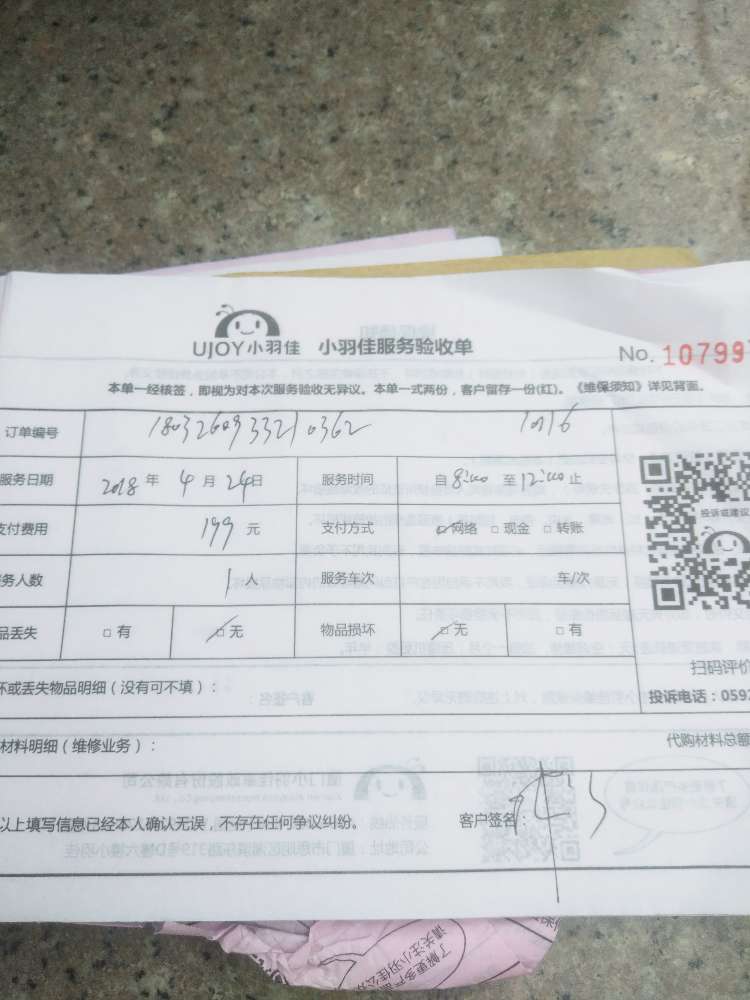 UJOY小羽佳 小羽佳服务验收单 No. 10799
本单一经核签，即视为对本次服务验收无异议。本单一式两份，客户留存一份(红)。《维保须知》详见背面。
订单编号 1803260933210362
服务日期 2018 年 4 月 24 日 服务时间 自 8:00 至 12:00 止
投诉或建议
支付费用 199 元 支付方式 网络 现金 转账
务人数 1 人 服务车次 车/次
品丢失 有 无 物品损坏 无 有
扫码评价
坏或丢失物品明细（没有可不填）： 投诉电话：059
材料明细（维修业务）： 代购材料总额
以上填写信息已经本人确认无误，不存在任何争议纠纷。 客户签名：
了解更多产
请关注小羽佳公